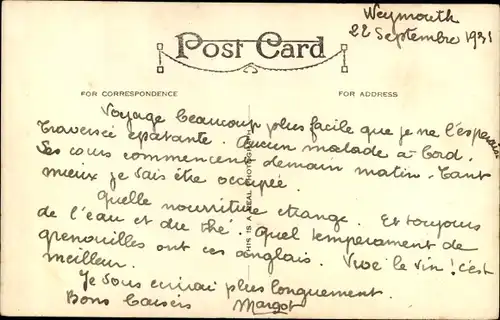 Weymouth
22 Septembre 1931
Post Card
FOR CORRESPONDENCE
FOR ADDRESS
THIS IS A REAL PHOTOGRAPH
Voyage beaucoup plus facile que je ne l'espérais
Traversée épatante. Aucun malade à bord.
Ses cours commencent demain matin. Tant
mieux je vais être occupée.
Quelle nourriture étrange. Et toujours
de l'eau et du thé. Quel tempérament de
grenouilles ont ces anglais. Vive le vin! c'est
meilleur.
Je vous écrirai plus longuement.
Bons baisers Margot